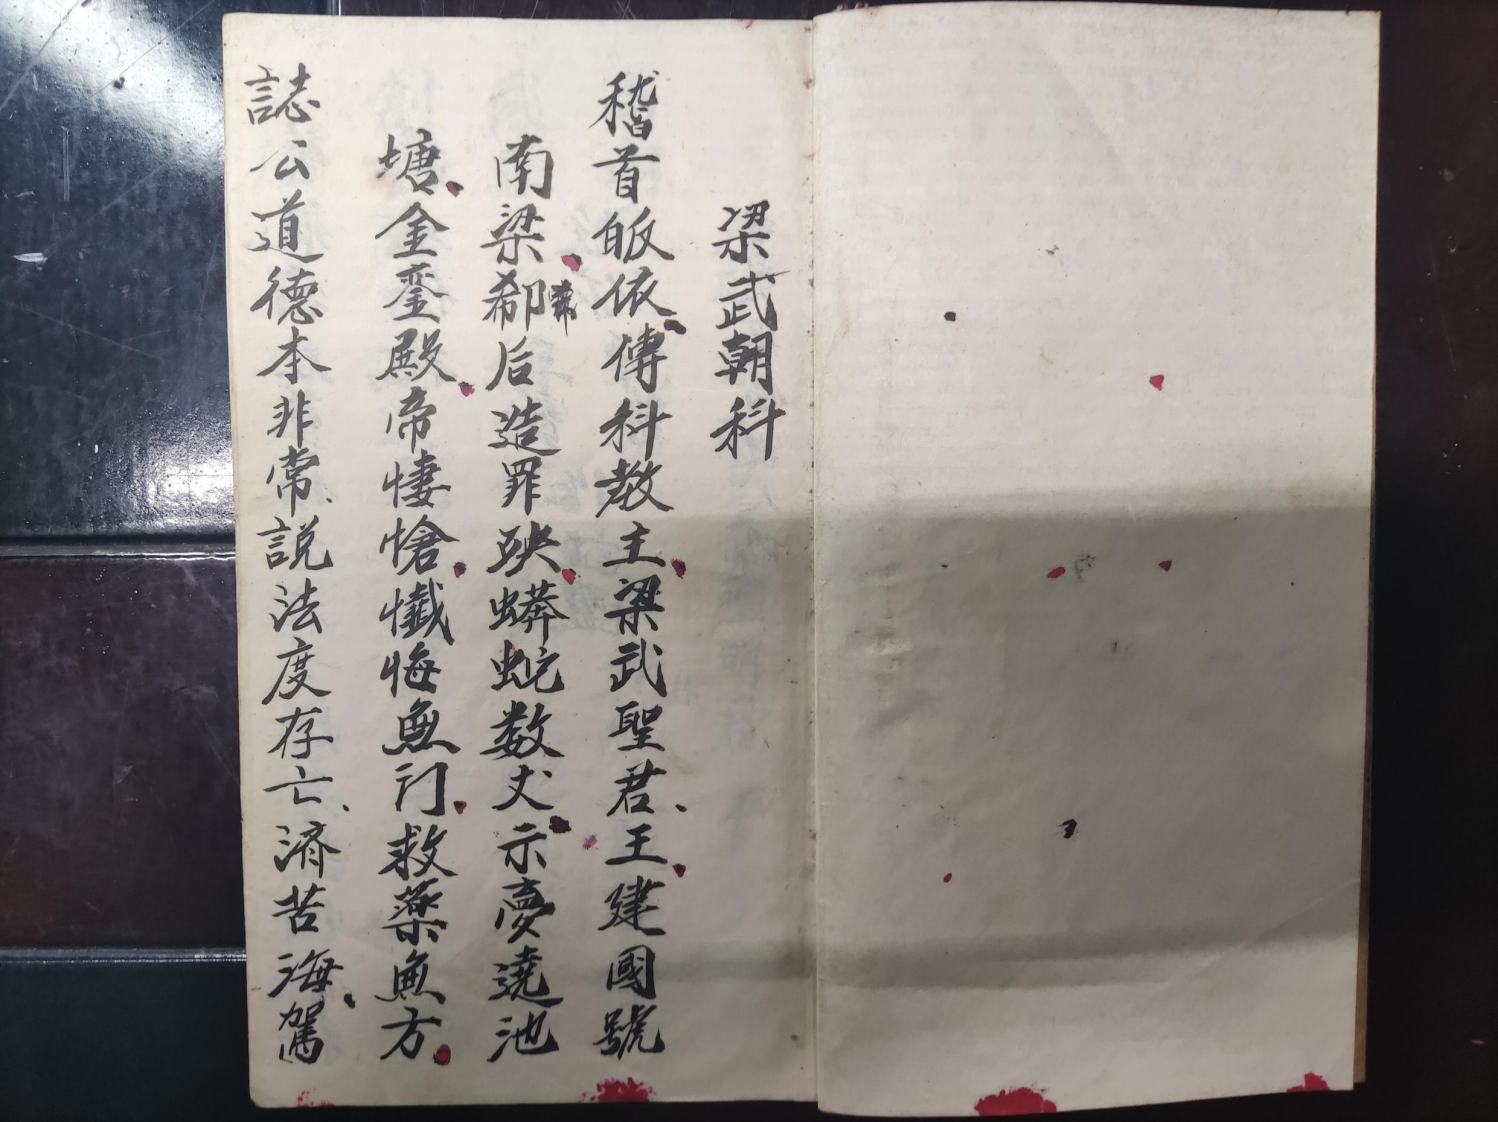 梁武朝科
稽首皈依傳科教主梁武聖君、王建國號
南梁郗后造罪殃蟒蛇数丈示夢遶池
塘、金銮殿帝悽愴懺悔無门救藥無方
誌公道德本非常、説法度存亡、濟苦海、駕